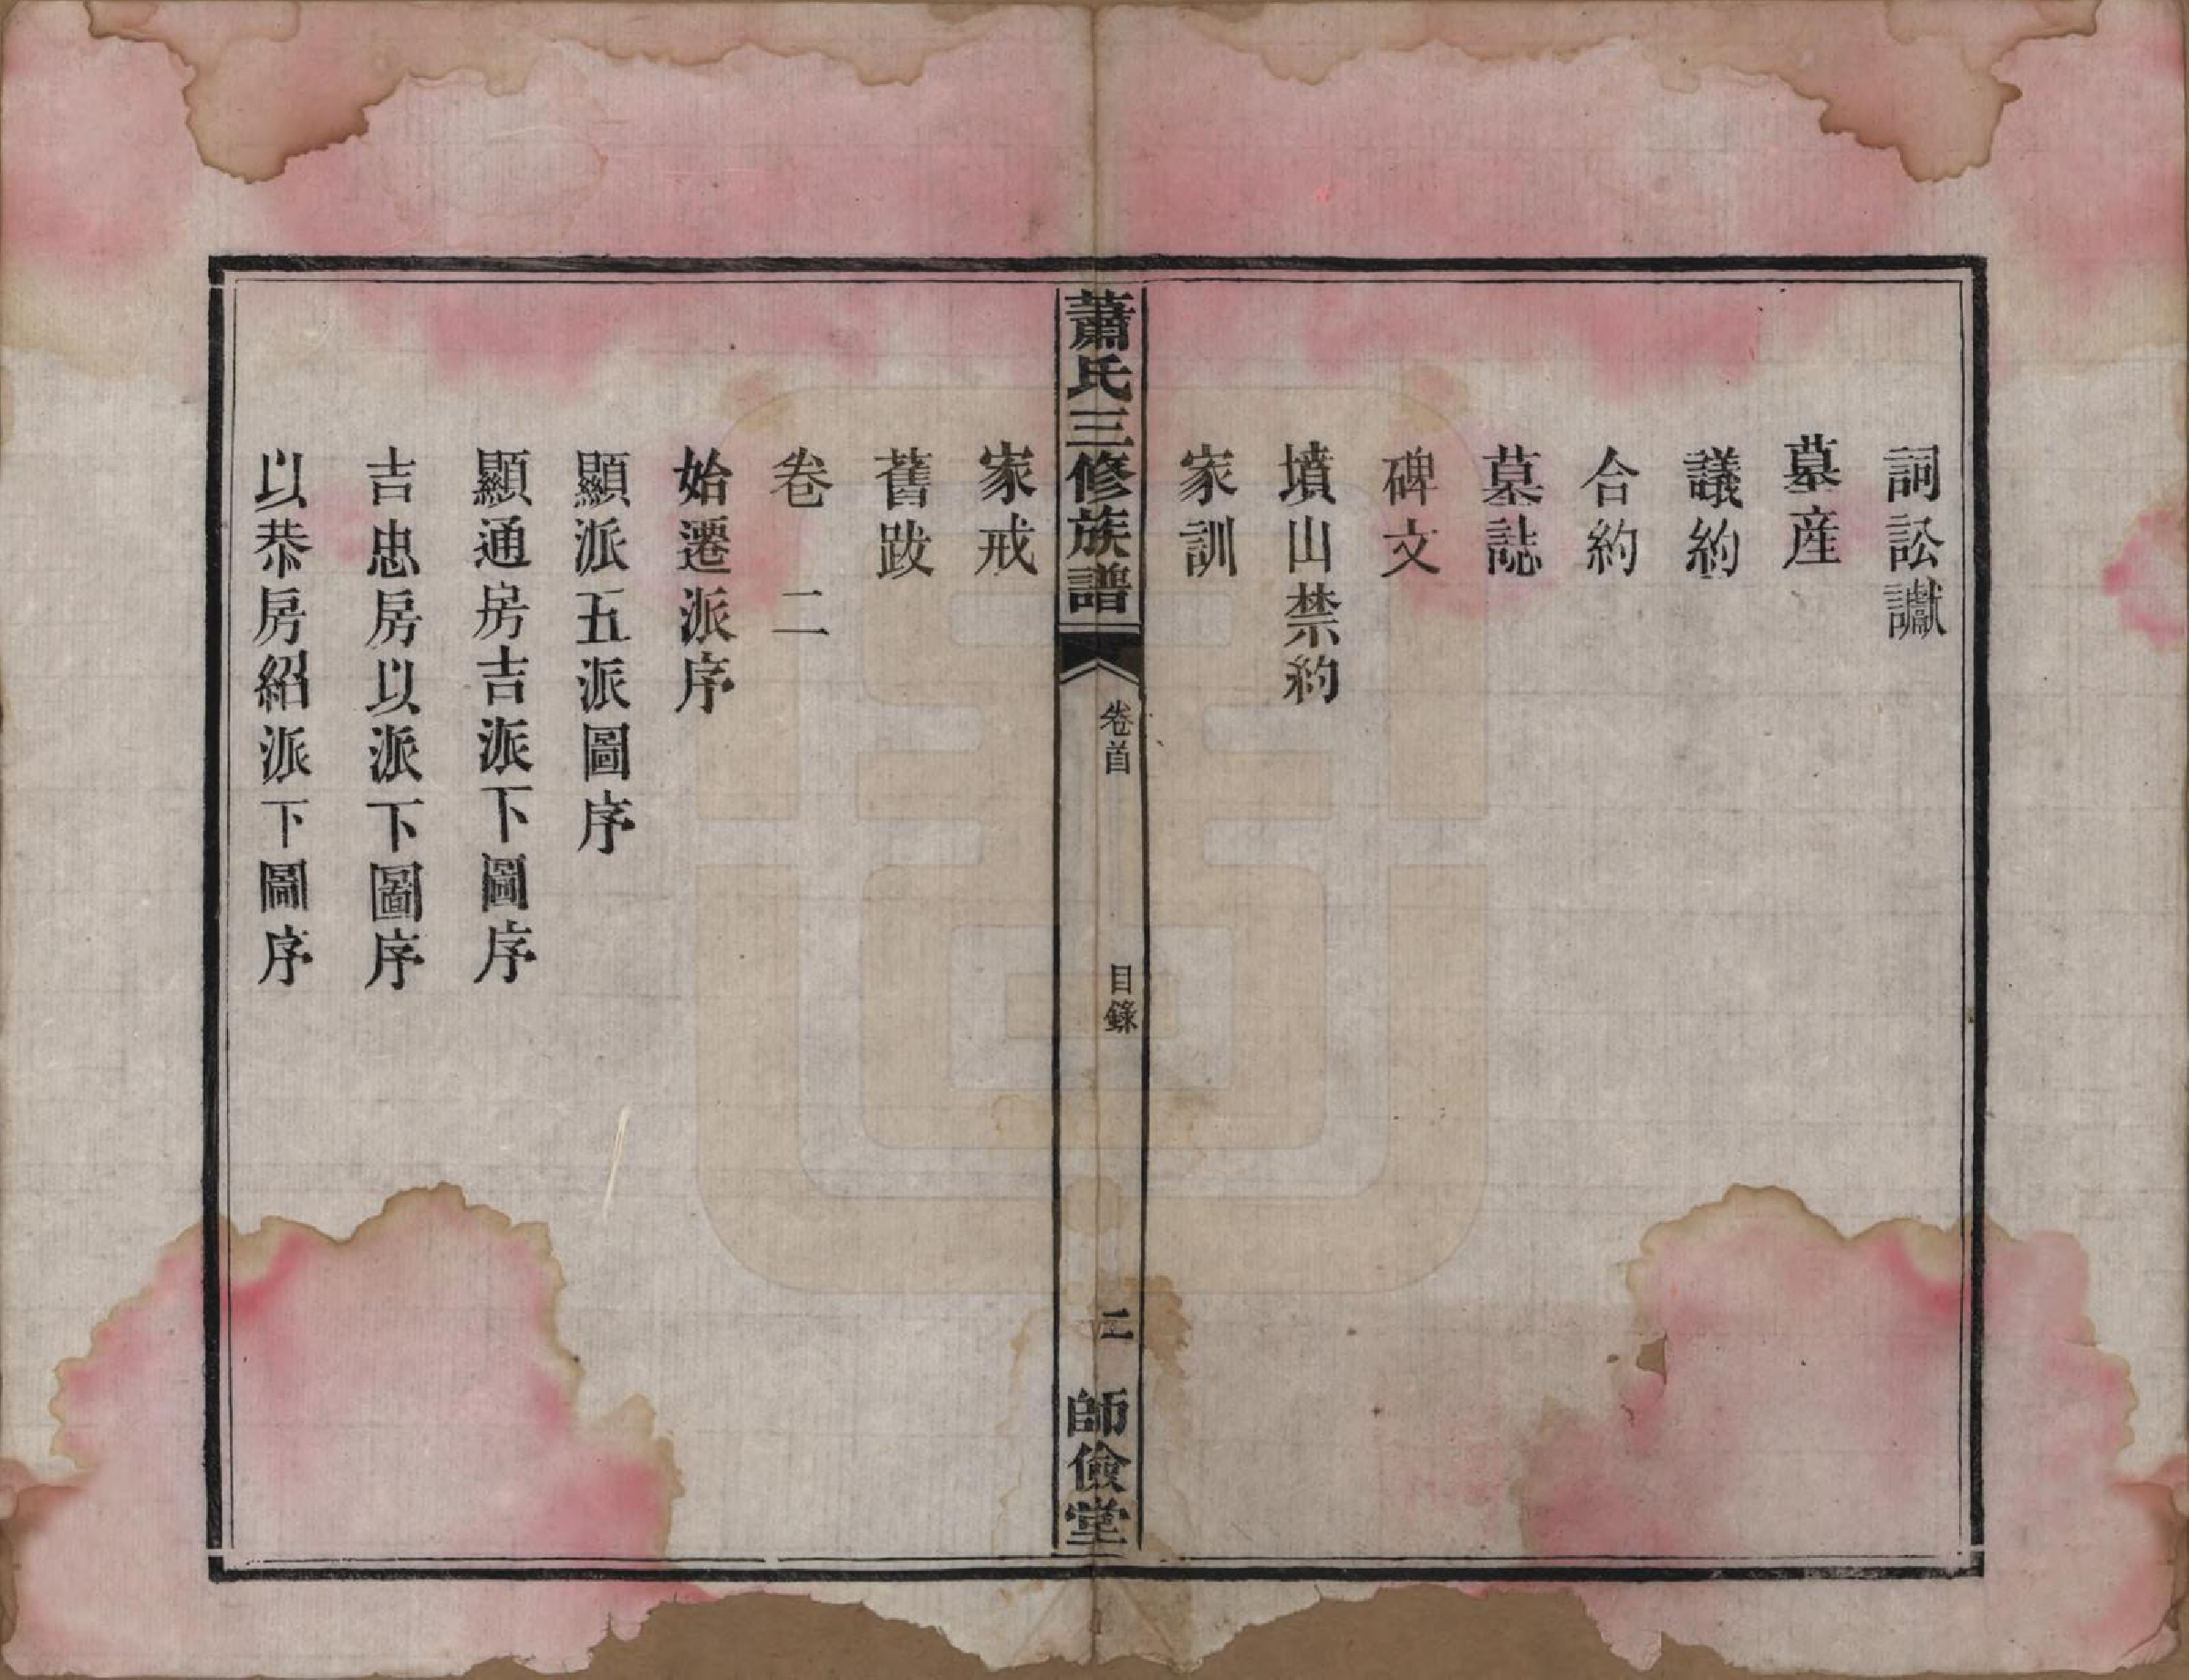 詞訟讞
墓産
議約
合約
墓誌
碑文
墳山禁約
家訓
蕭氏三修族譜
卷首
目錄
二
師儉堂
家戒
舊跋
卷二
始遷派序
顯派五派圖序
顯通房吉派下圖序
吉忠房以派下圖序
以恭房紹派下圖序